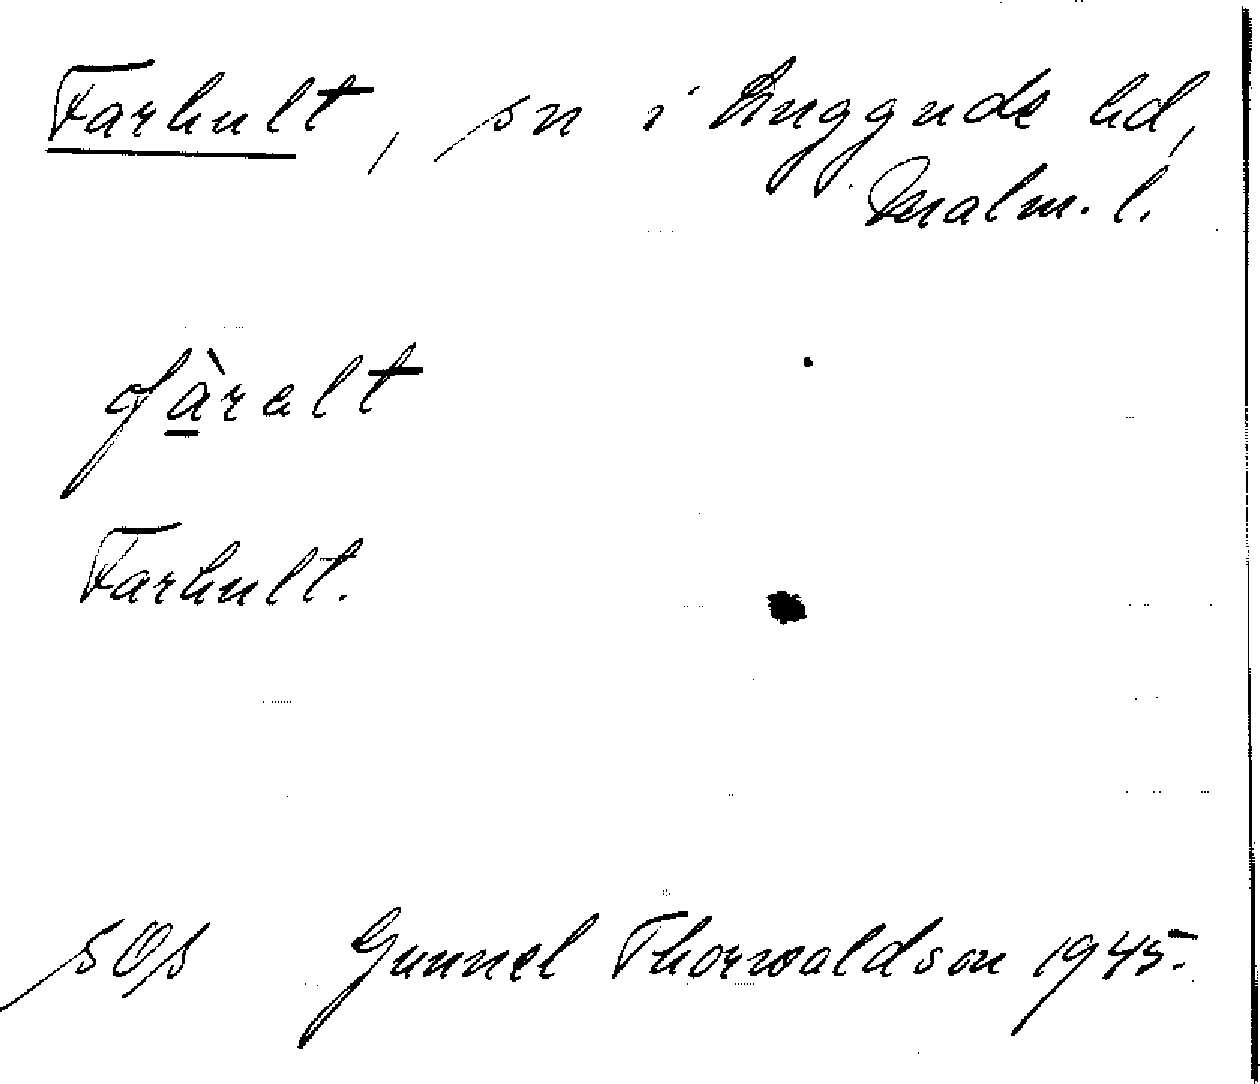 Farhult, sn i Luggude hd,
Malm. l.
fàralt
Farhult.
Gunnel Thorwaldson 1945.